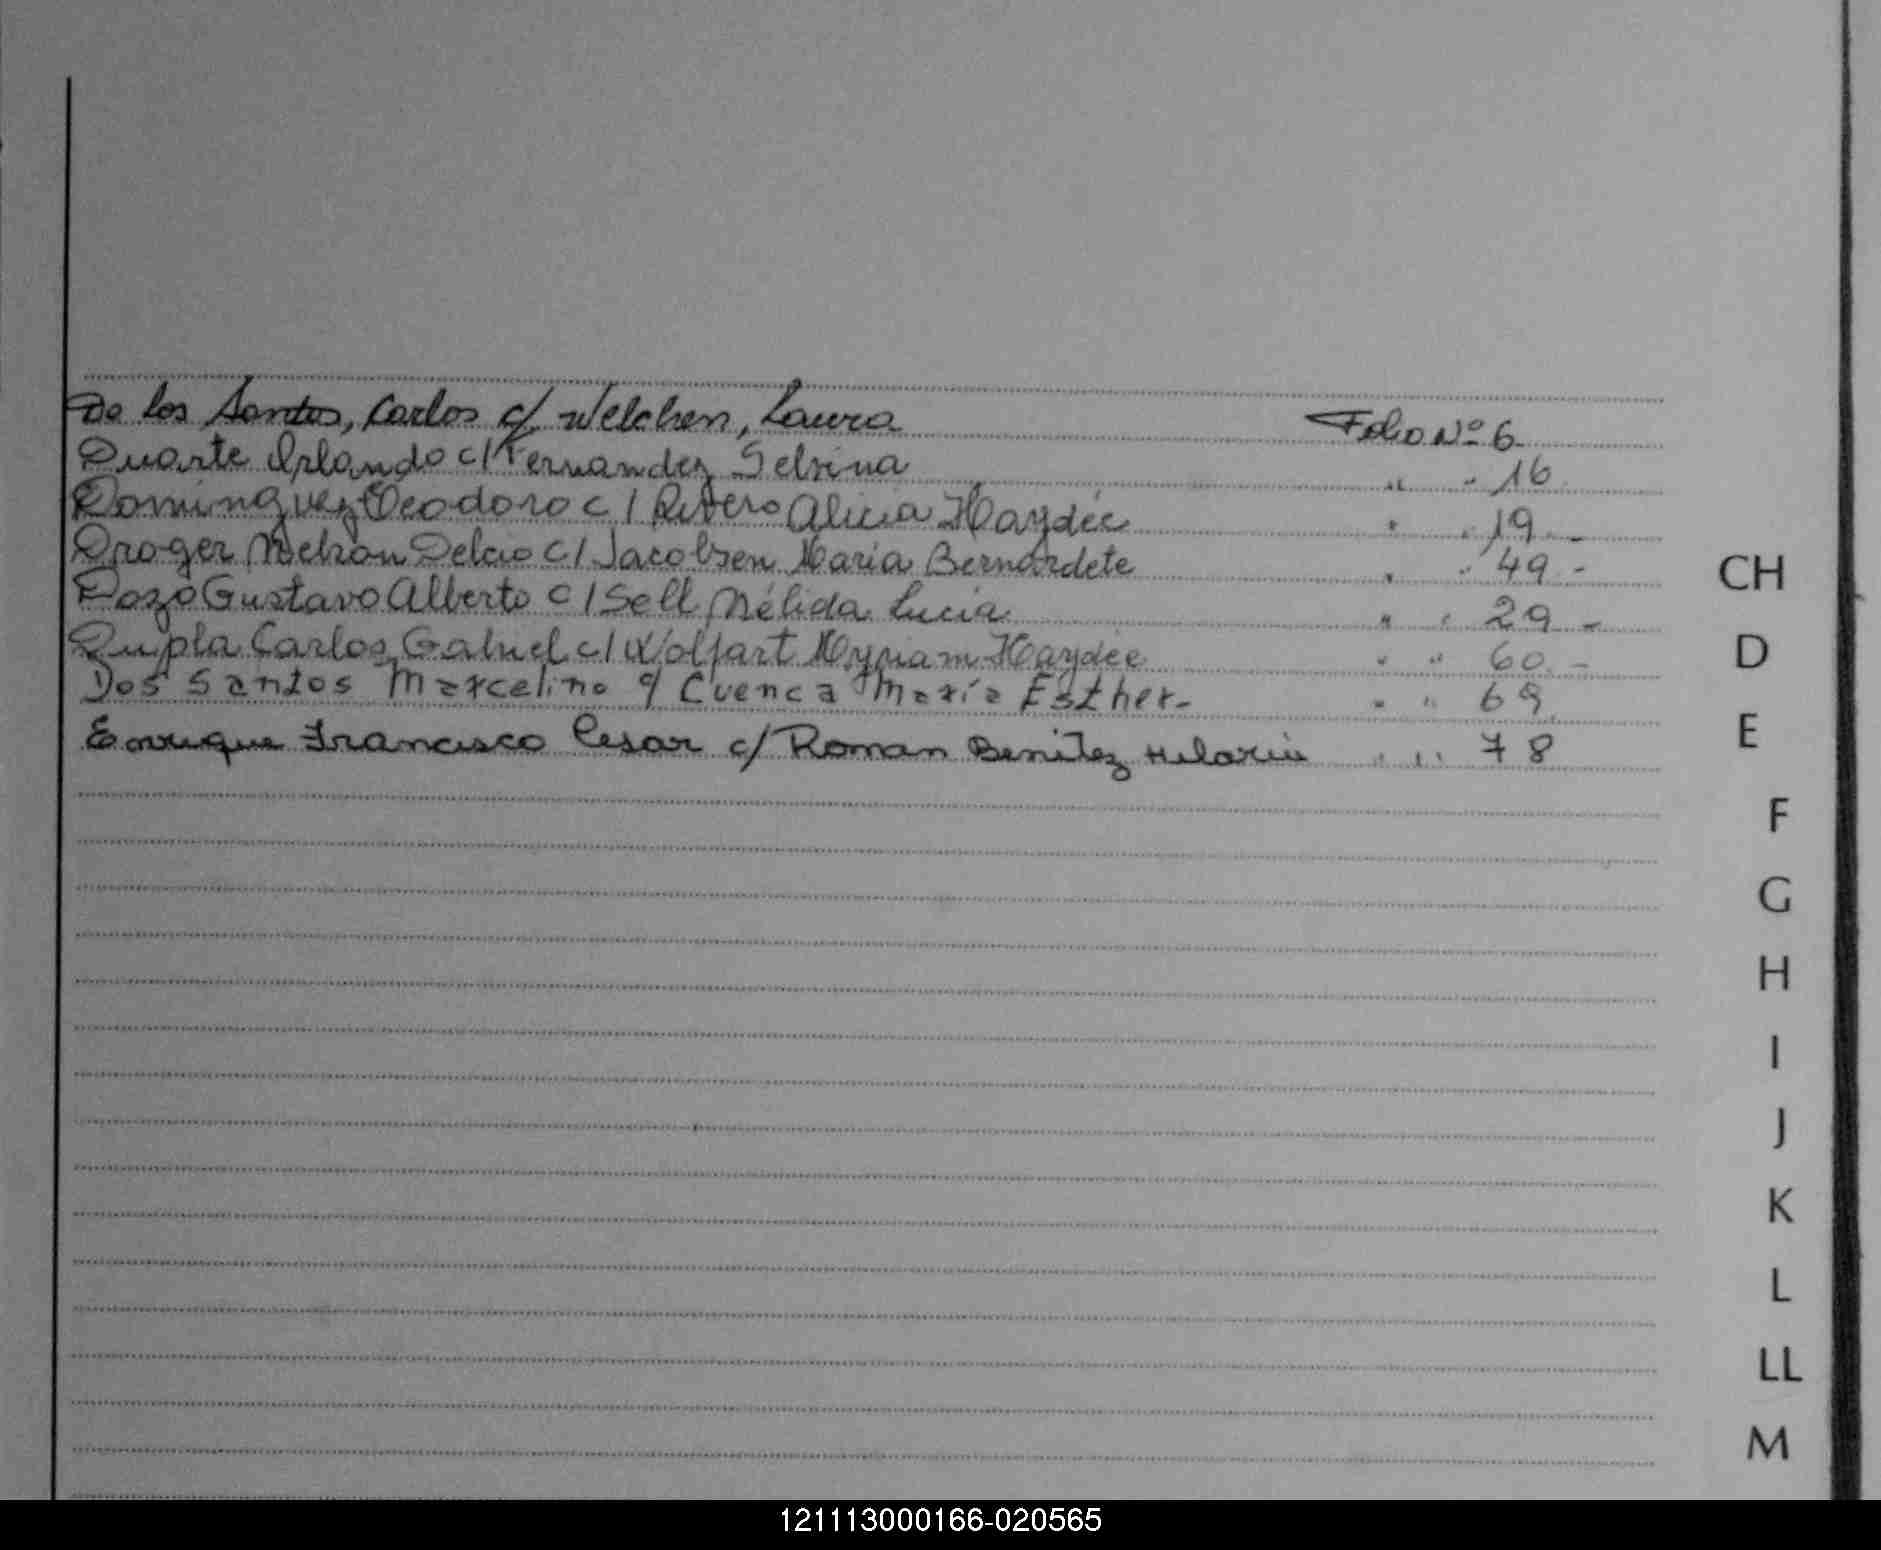 De los Santos, Carlos c/ Welchen, Laura Folio Nº 6
Duarte Orlando c/ Fernandez Selvina " " 16
Dominguez Teodoro c/ Rivero Alicia Haydée " " 19 -
Droger Nelson Delcio c/ Jacobsen Maria Bernardete " " 49 -
Dozo Gustavo Alberto c/ Sell Nélida Lucia " " 29 -
Dupla Carlos Gabriel c/ Wolfart Myriam Haydée " " 60 -
Dos Santos Marcelino c/ Cuenca María Esther - " " 69
Enrique Francisco Cesar c/ Roman Benitez " " 78
CH
D
E
F
G
H
I
J
K
L
LL
M
121113000166-020565